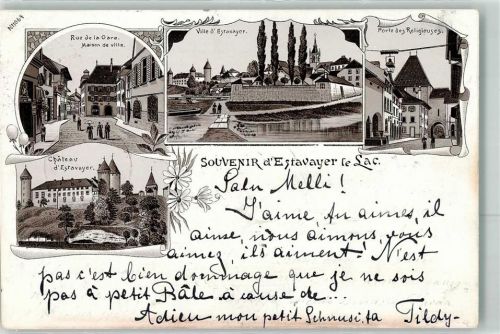 Rue de la Gare.
Maison de ville.
Ville d'Estavayer.
Porte des Religieuses.
Château
d'Estavayer.
SOUVENIR d'Estavayer le Lac.
Salu Melli!
J'aime tu aimes, il
aime, nous aimons, vous
aimez, ils aiment! N'est
pas c'est bien dommage que je ne sois
pas à petit Bâle à cause de...
Adieu mon petit Schnusi, ta Tildy-